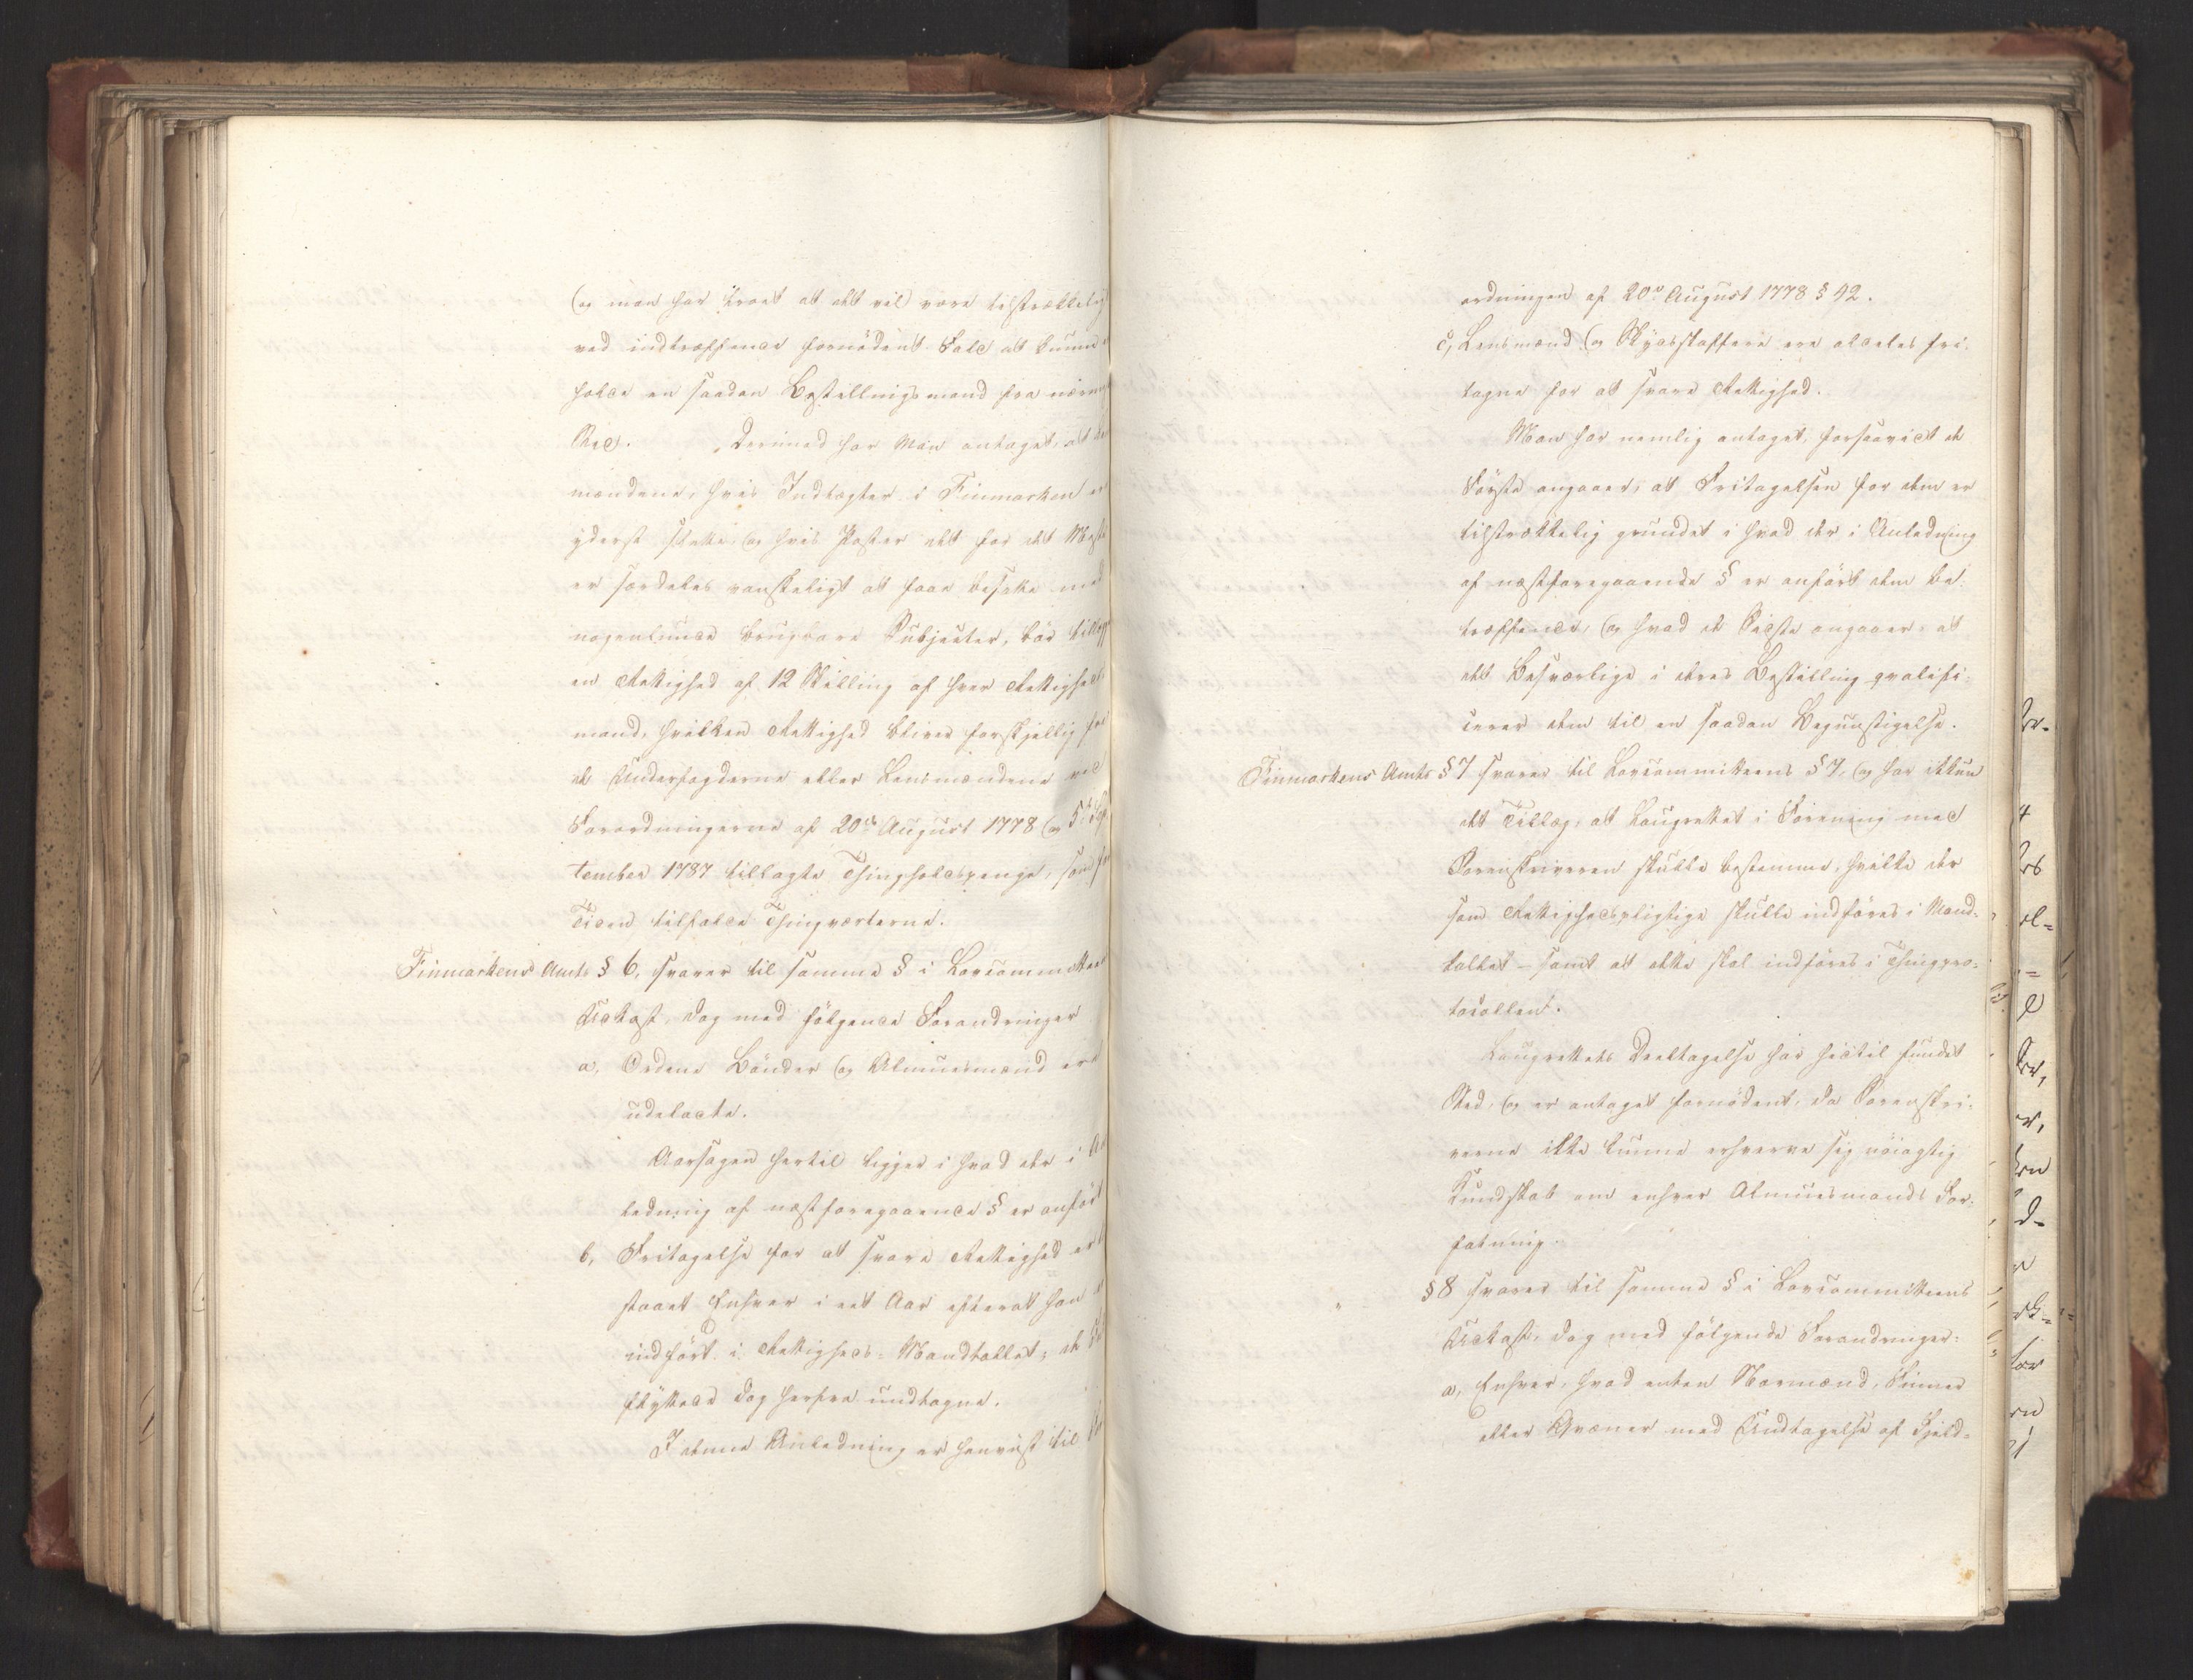 og man har troet at det vil være tilstrækkelig
ved indtræffende fornødent Fald at kunne
holde en saadan Bestillingsmand fra nærmeste
Sted. Derimod har Man antaget, at Lens
mændene, hvis Indtægter i Finmarken er
yderst slette, og hvis Poster det for det Meste
er særdeles vanskeligt at faae besatte med
nogenlunde brugbare Subjecter, bør tillægges
en Rettighed af 12 Skilling af hver Rettigheds
mand, hvilken Rettighed bliver forskjellig fra
de Underfogderne eller Lensmændene ved
Forordningerne af 20de August 1778 og 5te Sep
tember 1787 tillagte Thingholdspenge, som for
Tiden tilfalde Thingværterne.
Finmarkens Amts § 6, svarer til samme § i Lovcommitteens
Udkast, dog med følgende Forandringer
a, Ordene Bönder og Almuesmænd ere
udeladte.
Aarsagen hertil ligger i hvad der i An
ledning af næstforegaaende § er anført
b, Fritagelse for at svare Rettighed er til
staaet Enhver i eet Aar efterat han er
indført i Rettigheds-Mandtallet; de
flyttede dog herfra undtagne.
I denne Anledning er henviist til For
ordningen af 20de August 1778 § 42.
c, Lensmænd og Skydsskaffere ere aldeles fri-
tagne for at svare Rettighed.
Man har nemlig antaget, forsaavidt de
Første angaaer, at Fritagelsen for dem er
tilstrækkelig grundet i hvad der i Anledning
af næstforegaaende § er anført dem be-
træffende, og hvad de Sidste angaaer, at
det Besværlige i deres Bestilling qvalifi-
cerer dem til en saadan Begunstigelse.
Finmarkens Amts § 7 svarer til Lovcommitteens § 7, og har ikkun
det Tillæg, at Laugrettet i Forening med
Sorenskriveren skulle bestemme, hvilke der
som Rettighedspligtige skulle indføres i Mand-
tallet – samt at dette skal indføres i Thingpro-
tocollen.
Laugrettets Deeltagelse har hidtil fundet
Sted, og er antaget fornødent, da Sorenskri-
verne ikke kunne erhverve sig nöiagtig
Kundskab om enhver Almuesmands For-
fatning.
" § 8 svarer til samme § i Lovcommitteens
Udkast, dog med følgende Forandringer:
a, Enhver, hvad enten Normænd, Finner
eller Qvæner med Undtagelse af Fjeld-